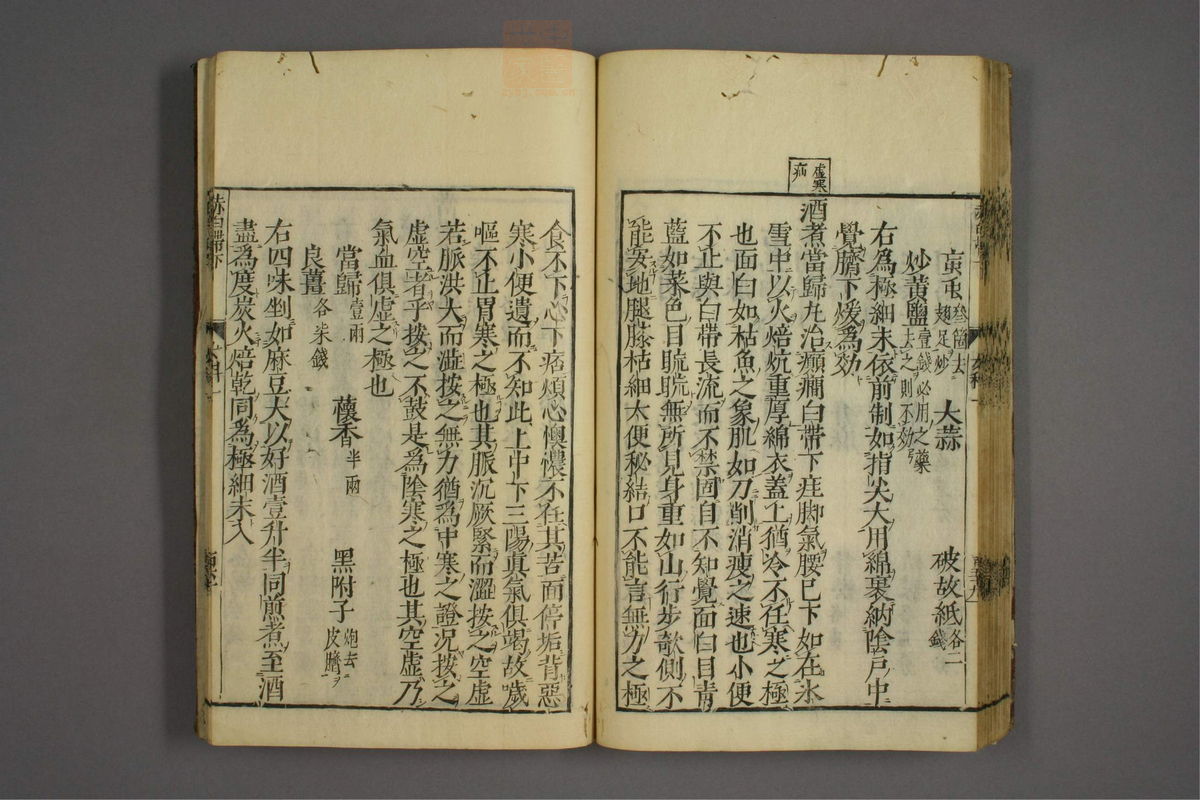 虛寒病
䖟䖝 叁箇去翅足炒 大蒜 破故紙 各二錢
炒黃鹽 壹錢必用之藥去之則不効
右爲極細末依前制如指尖大用綿裹納陰戶中
覺臍下煖爲効
酒煮當歸丸治㿗疝白帶下疰脚氣腰已下如在氷
雪中以火焙炕重厚綿衣蓋上猶冷不任寒之極
也面白如枯魚之象肌如刀削消瘦之速也小便
不止與白帶長流而不禁固自不知覺面白目青
藍如菜色目𥆨𥆨無所見身重如山行步欹側不
能安地腿膝枯細大便秘結口不能言無力之極
食不下心下痞煩心懊憹不任其苦面停垢背惡
寒小便遺而不知此上中下三陽眞氣俱竭故歲
嘔不止胃寒之極也其脈沉厥緊而澀按之空虛
若脈洪大而澁按之無力猶爲中寒之證况按之
虛空者乎按之不鼓是爲陰寒之極也其空虛乃
氣血俱虛之極也
當歸 壹兩 蘹香 半兩 黑附子 炮去皮臍
良薑 各柒錢
右四味剉如麻豆大以好酒壹升半同煎煮至酒
盡爲度炭火焙乾同爲極細末入
赤白帶下